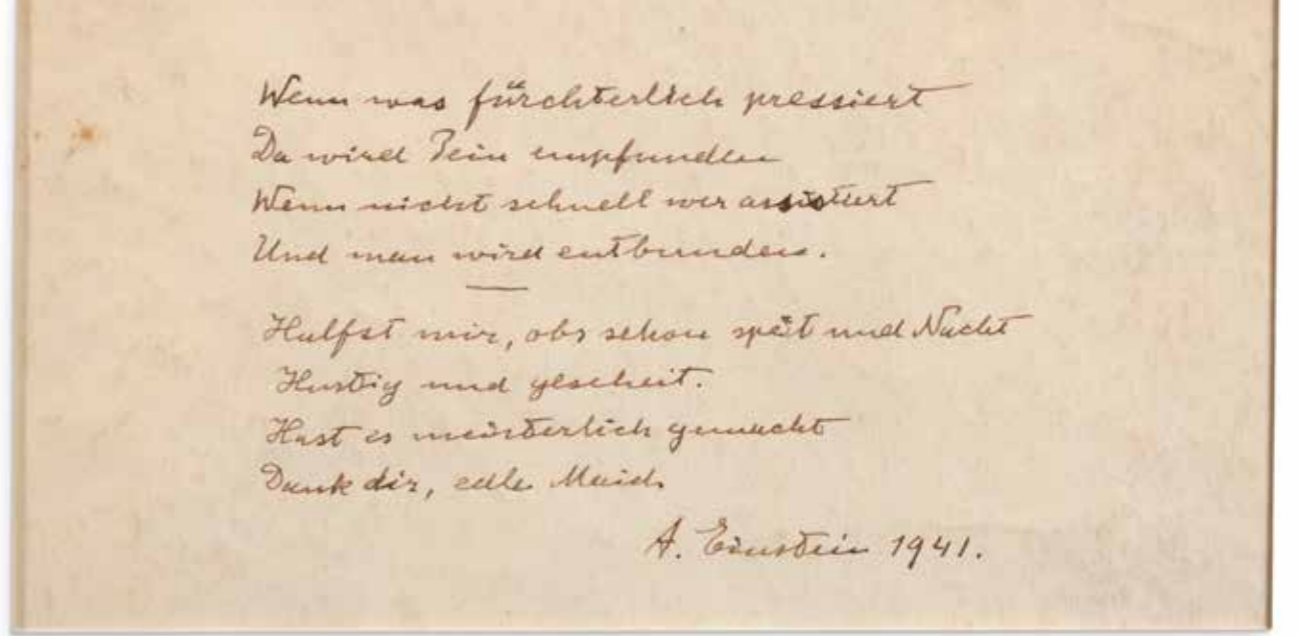 Wenn was fürchterlich pressiert
Da wird Pein empfunden
Wenn nicht schnell wer assistiert
Und man wird entbunden.
Halfst mir, obs schon spät und Nacht
Hurtig und gescheit.
Hast es meisterlich gemacht
Dank dir, edle Maid.
A. Einstein 1941.